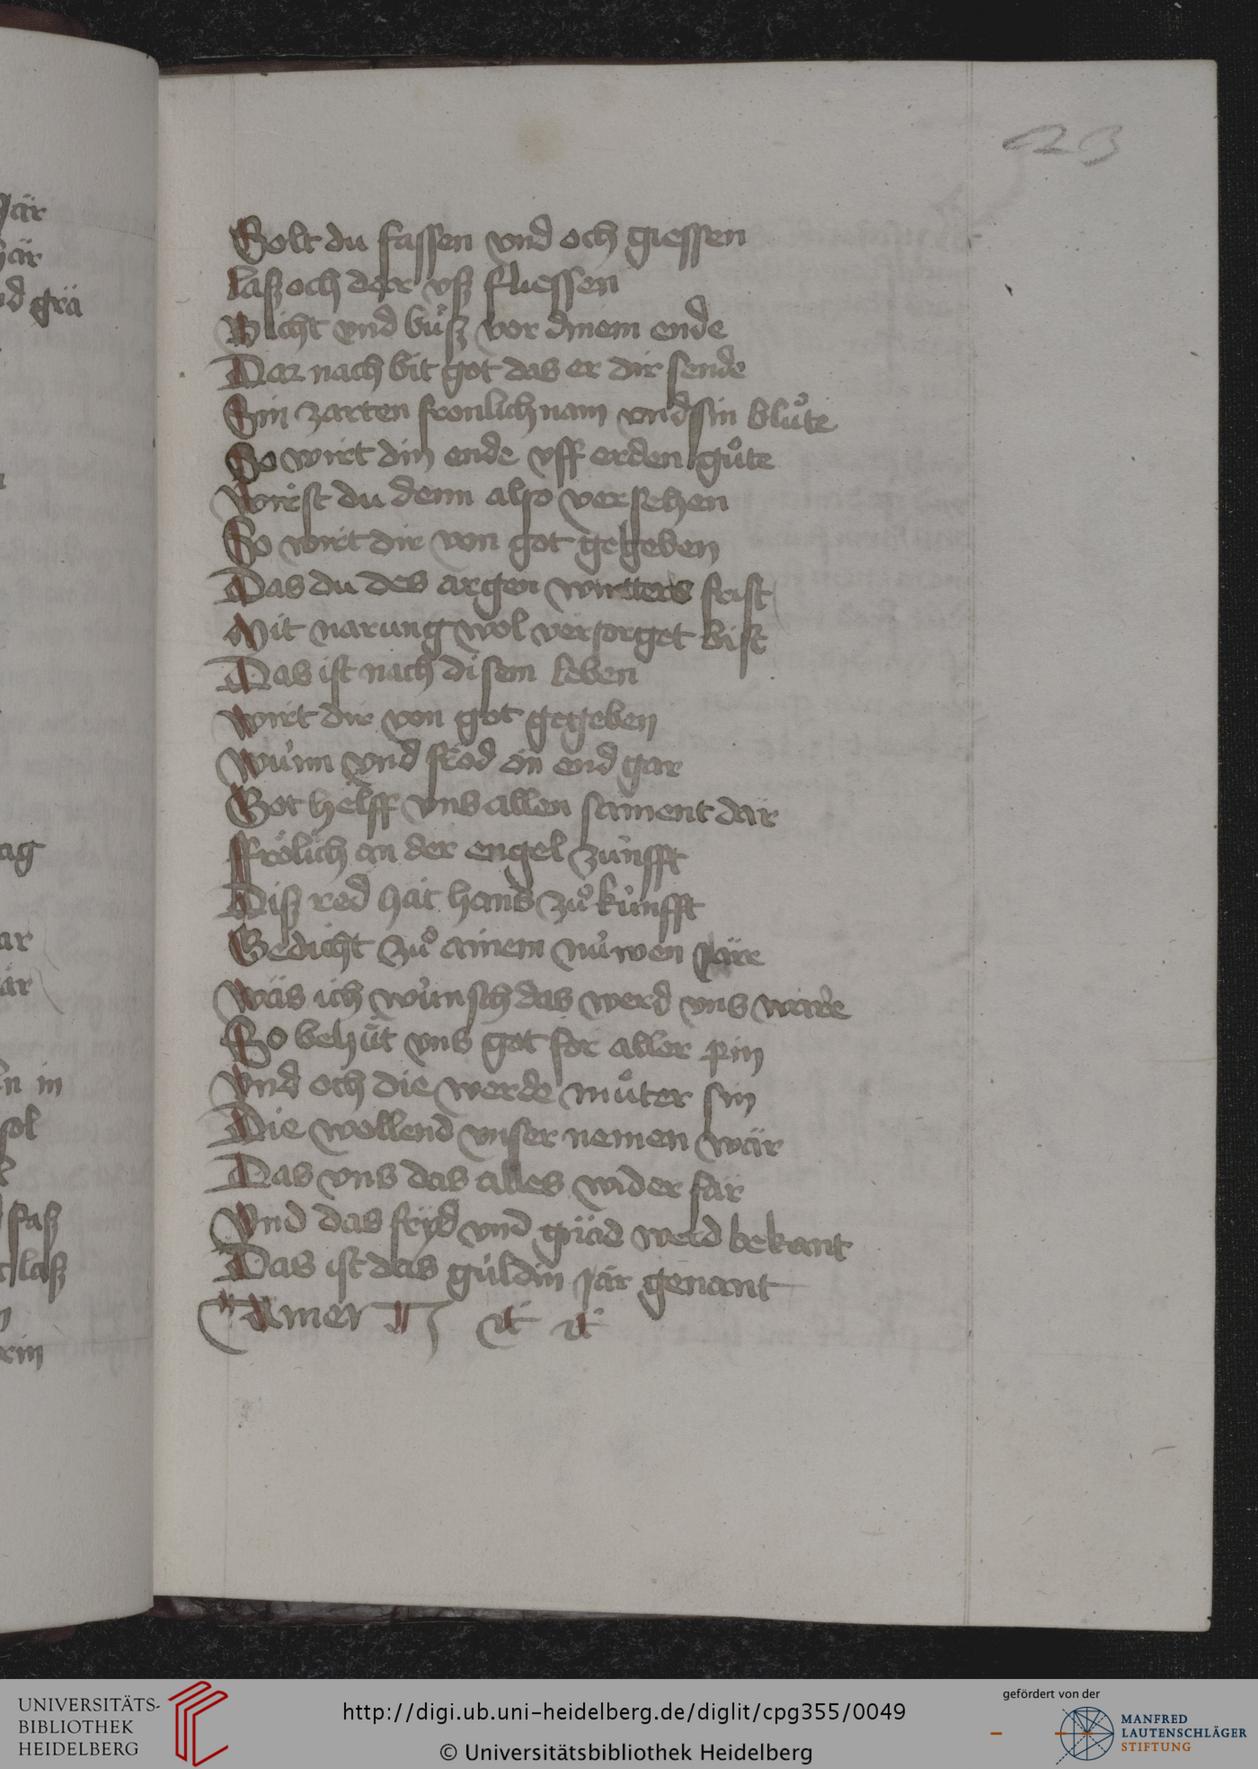 23
Solt du fassen vnd och giessen
laß och der vß fliessen
Bicht vnd buͦß vor dinem ende
Dar nach bit got das er dir sende
Sin zarten fronlichnam vnd sin bluͦte
So wirt din ende vff erden guͦte
Wirst du denn also versehen
So wirt dir von got gegeben
Das du des argen wintters frist
Mit narung wol versorget bist
Das ist nach disem leben
wirt dir von got gegeben
wünn vnd fröd än end gar
Got helff vns allen sament dar
Frölich an der engel zünfft
Diß red hät hans zuͦkünfft
Gedicht zuͦ ainem nüwen Järe
Wäs ich wünsch das werd vns ware
So behüt vns got for aller pin
vnd och die werde muͦter sin
Die wellend vnser nemen wär
Das vns das alles wider far
Vnd das fryd vnd gnäd werd bekant
Das ist das guldin jär genant
Amen
Jär
här
grä
ag
ar
är
in
sol
faß
laß
UNIVERSITÄTS-
BIBLIOTHEK
HEIDELBERG
http://digi.ub.uni-heidelberg.de/diglit/cpg355/0049
© Universitätsbibliothek Heidelberg
gefördert von der
MANFRED
LAUTENSCHLÄGER
STIFTUNG